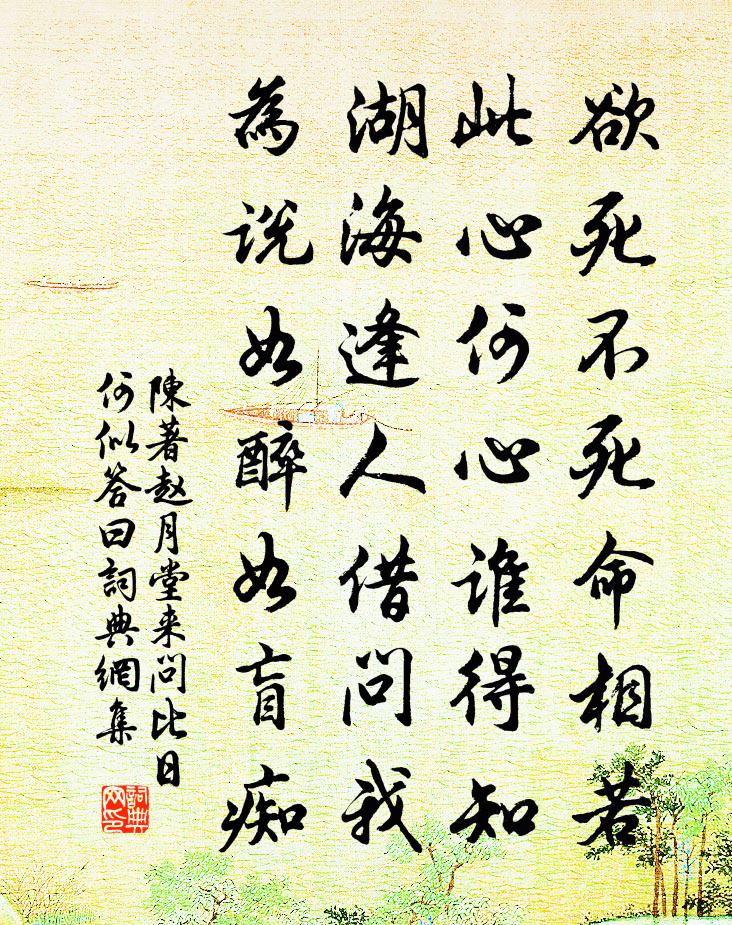 欲死不死命相若
此心何心誰得知
湖海逢人借問我
為說如醉如盲痴
陳著赵月堂来問比日
何似答曰詞典網集
詞典
网印